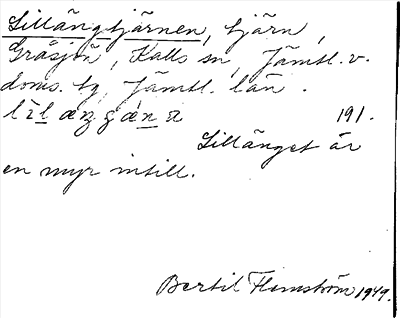 Lillängtjärnen, tjärn,
Gråsjön, Kalls sn, Jämtl. v.
doms. tg, Jämtl. län.
191.
Lillänget är
en myr intill.
Bertil Flemström 1949.